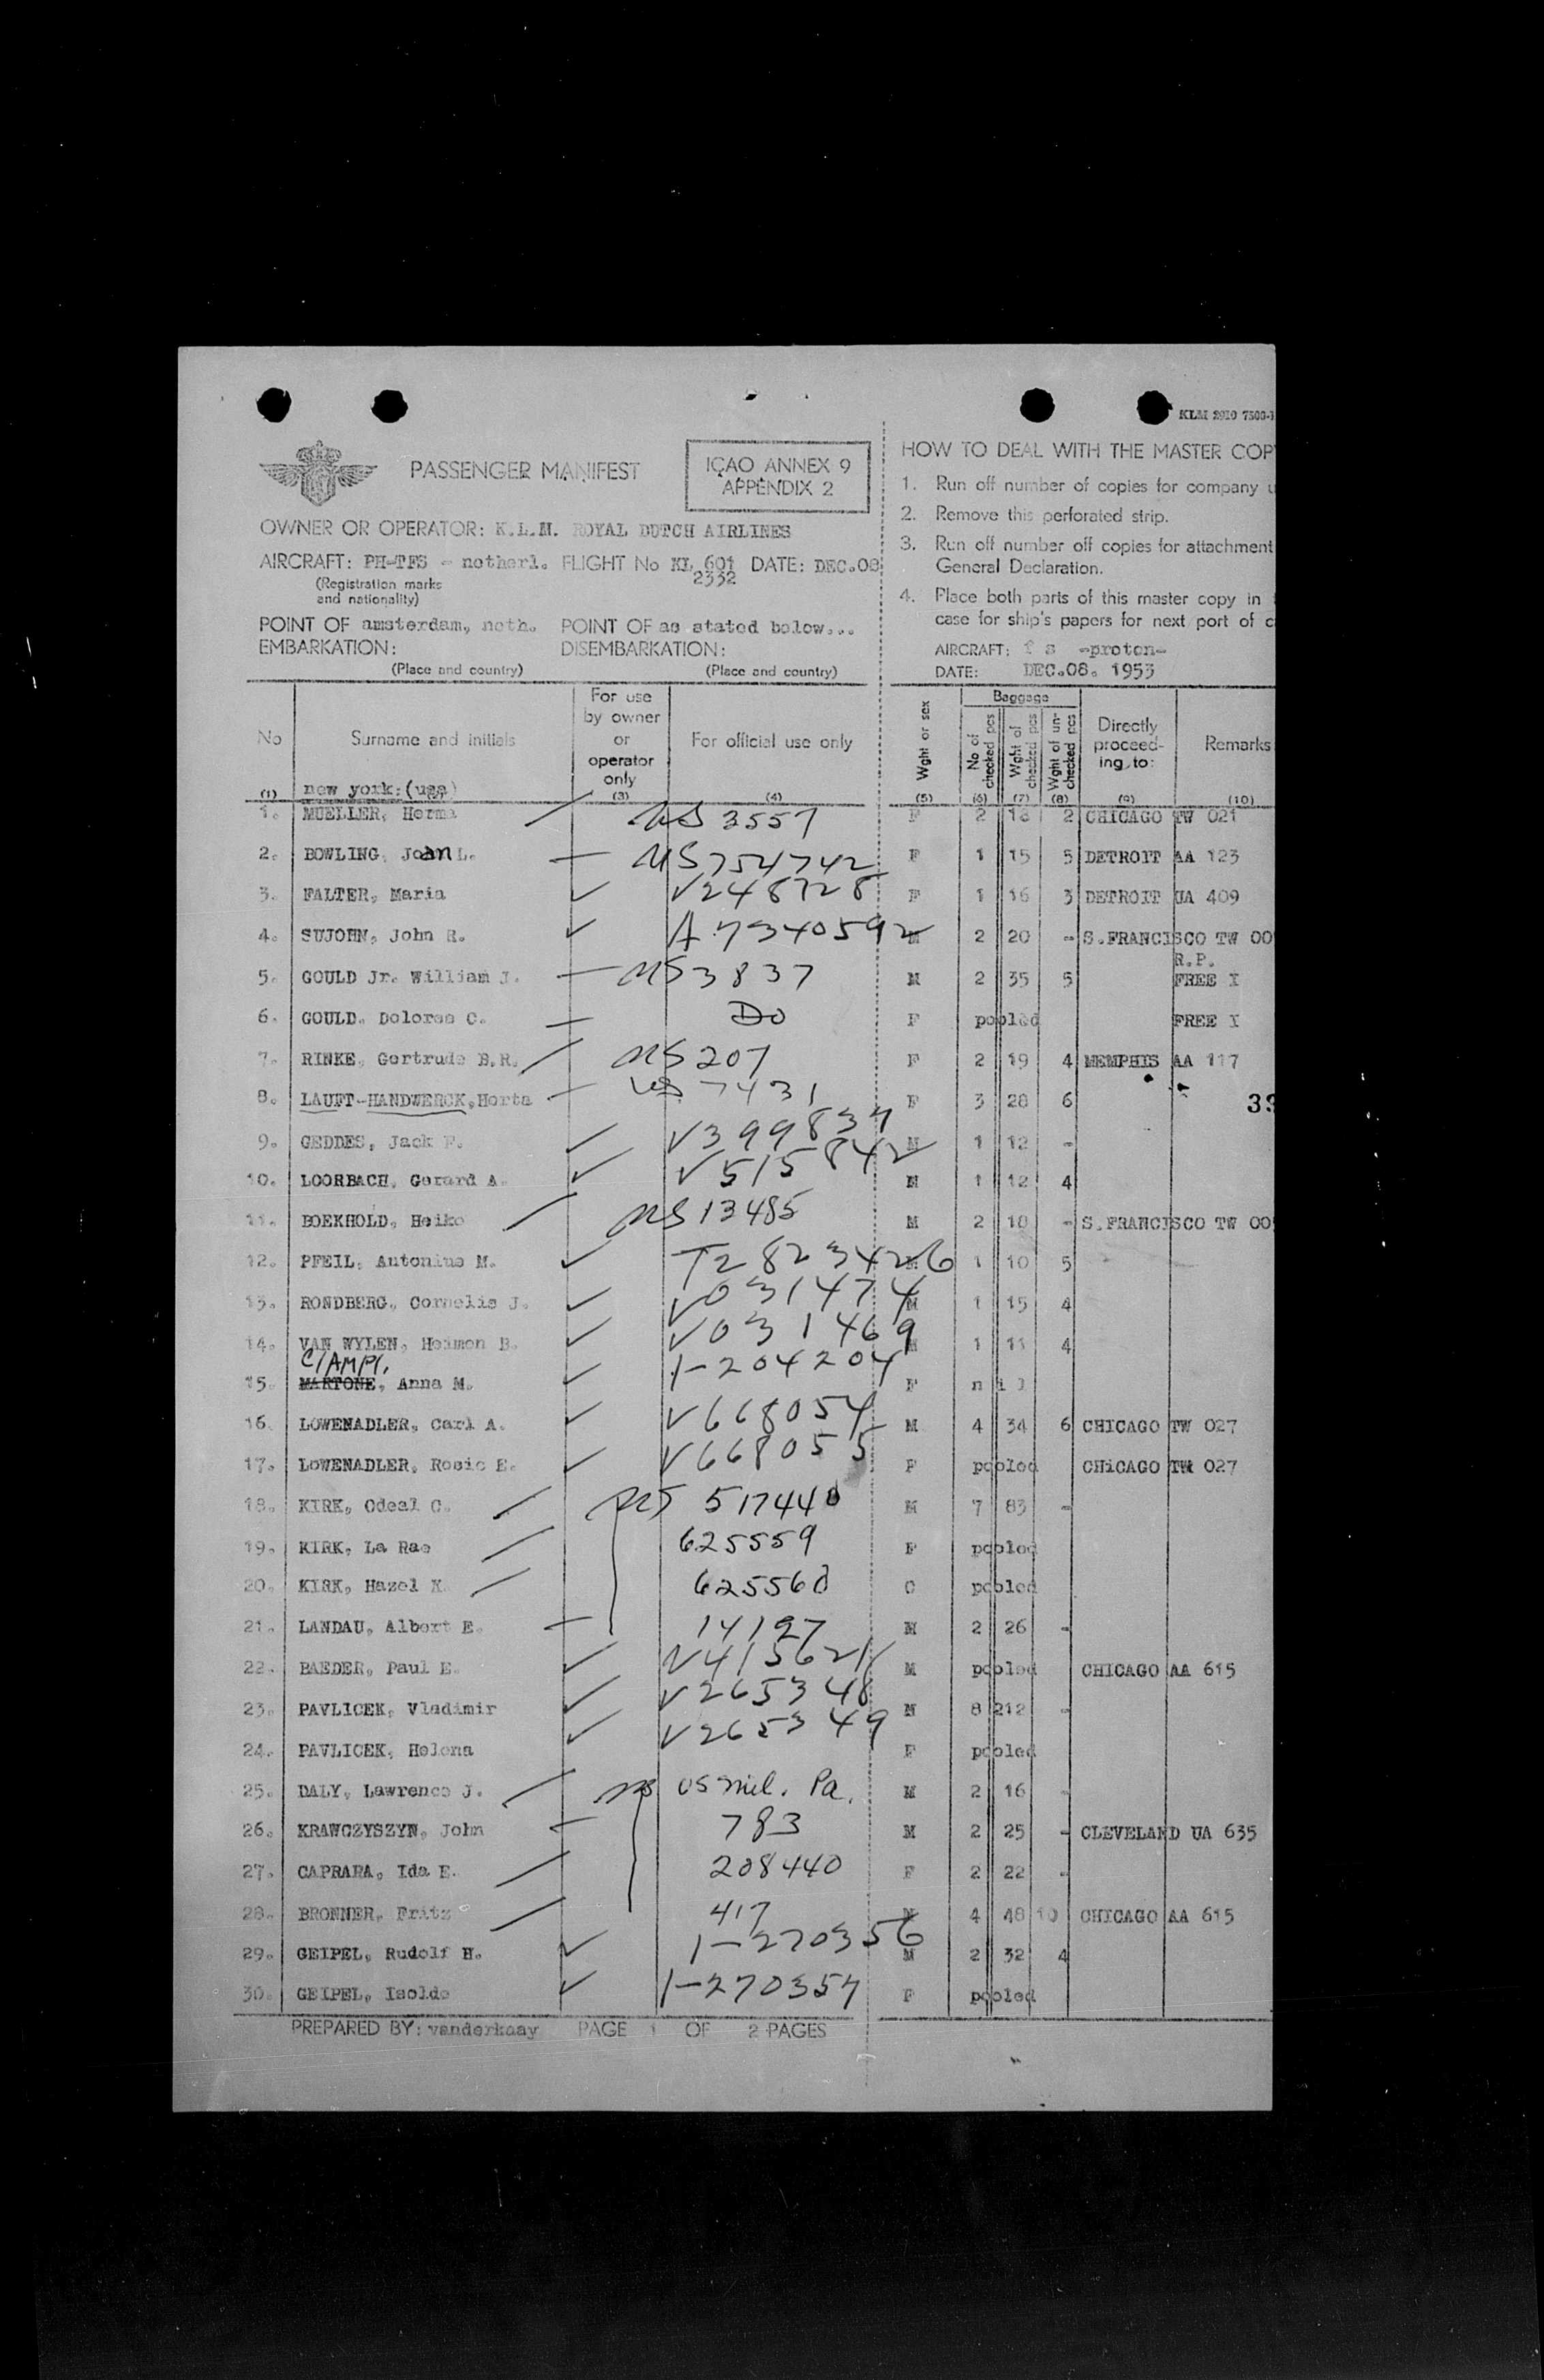 KLM 2910 7500-1
PASSENGER MANIFEST
ICAO ANNEX 9
APPENDIX 2
OWNER OR OPERATOR: K.L.M. ROYAL DUTCH AIRLINES
AIRCRAFT: PH-TFS - netherl. FLIGHT No KL 601 DATE: DEC.08
2332
(Registration marks
and nationality)
POINT OF amsterdam, neth. POINT OF as stated below...
EMBARKATION: DISEMBARKATION:
(Place and country) (Place and country)
HOW TO DEAL WITH THE MASTER COP
1. Run off number of copies for company u
2. Remove this perforated strip.
3. Run off number off copies for attachment
General Declaration.
4. Place both parts of this master copy in
case for ship's papers for next port of c
AIRCRAFT: f s -proton-
DATE: DEC.08. 1953
No Surname and initials For use by owner or operator only For official use only Wght or sex Baggage No of checked pcs Wght of checked pcs Wght of un-checked pcs Directly proceed-ing to: Remarks
(1) new york: (usa) (3) (4) (5) (6) (7) (8) (9) (10)
1. MUELLER, Herma US 3557 F 2 18 2 CHICAGO TW 021
2. BOWLING, Joan L. US 754742 F 1 15 5 DETROIT AA 123
3. FALTER, Maria V248728 F 1 16 3 DETROIT UA 409
4. SUJOHN, John R. A 7340592 M 2 20 - S.FRANCISCO TW 00
R.P.
5. GOULD Jr. William J. US 3837 M 2 35 5 FREE I
6. GOULD, Dolores C. Do F pooled FREE I
7. RINKE, Gertrude B.R. US 207 F 2 19 4 MEMPHIS AA 117
8. LAUFT-HANDWERCK, Herta US 7431 F 3 28 6
39
9. GEDDES, Jack F. V399837 M 1 12 -
10. LOORBACH, Gerard A. V515842 M 1 12 4
11. BOEKHOLD, Heiko US 13485 M 2 18 - S.FRANCISCO TW 00
12. PFEIL, Antonius M. T2823426 M 1 10 5
13. RONDBERG, Cornelis J. V031474 M 1 15 4
14. VAN WYLEN, Heimen B. V031469 M 1 11 4
CIAMPI,
15. MARTONE, Anna M. 1-204204 F nil
16. LOWENADLER, Carl A. V668054 M 4 34 6 CHICAGO TW 027
17. LOWENADLER, Rosie E. V668055 F pooled CHiCAGO TW 027
18. KIRK, Odeal C. US 517440 M 7 83 -
19. KIRK, La Rae 625559 F pooled
20. KIRK, Hazel K. 625560 C pooled
21. LANDAU, Albert E. 14197 M 2 26 -
22. BAEDER, Paul E. V415621 M pooled CHICAGO AA 615
23. PAVLICEK, Vladimir V265348 M 8 212 -
24. PAVLICEK, Helena V265349 F pooled
25. DALY, Lawrence J. US US mil. Pa. M 2 16 -
26. KRAWCZYSZYN, John 783 M 2 25 - CLEVELAND UA 635
27. CAPRARA, Ida E. 208440 F 2 22 -
28. BRONNER, Fritz 417 M 4 48 10 CHICAGO AA 615
29. GEIPEL, Rudolf H. 1-270356 M 2 32 4
30. GEIPEL, Isolde 1-270357 F pooled
PREPARED BY: vanderkaay PAGE 1 OF 2 PAGES